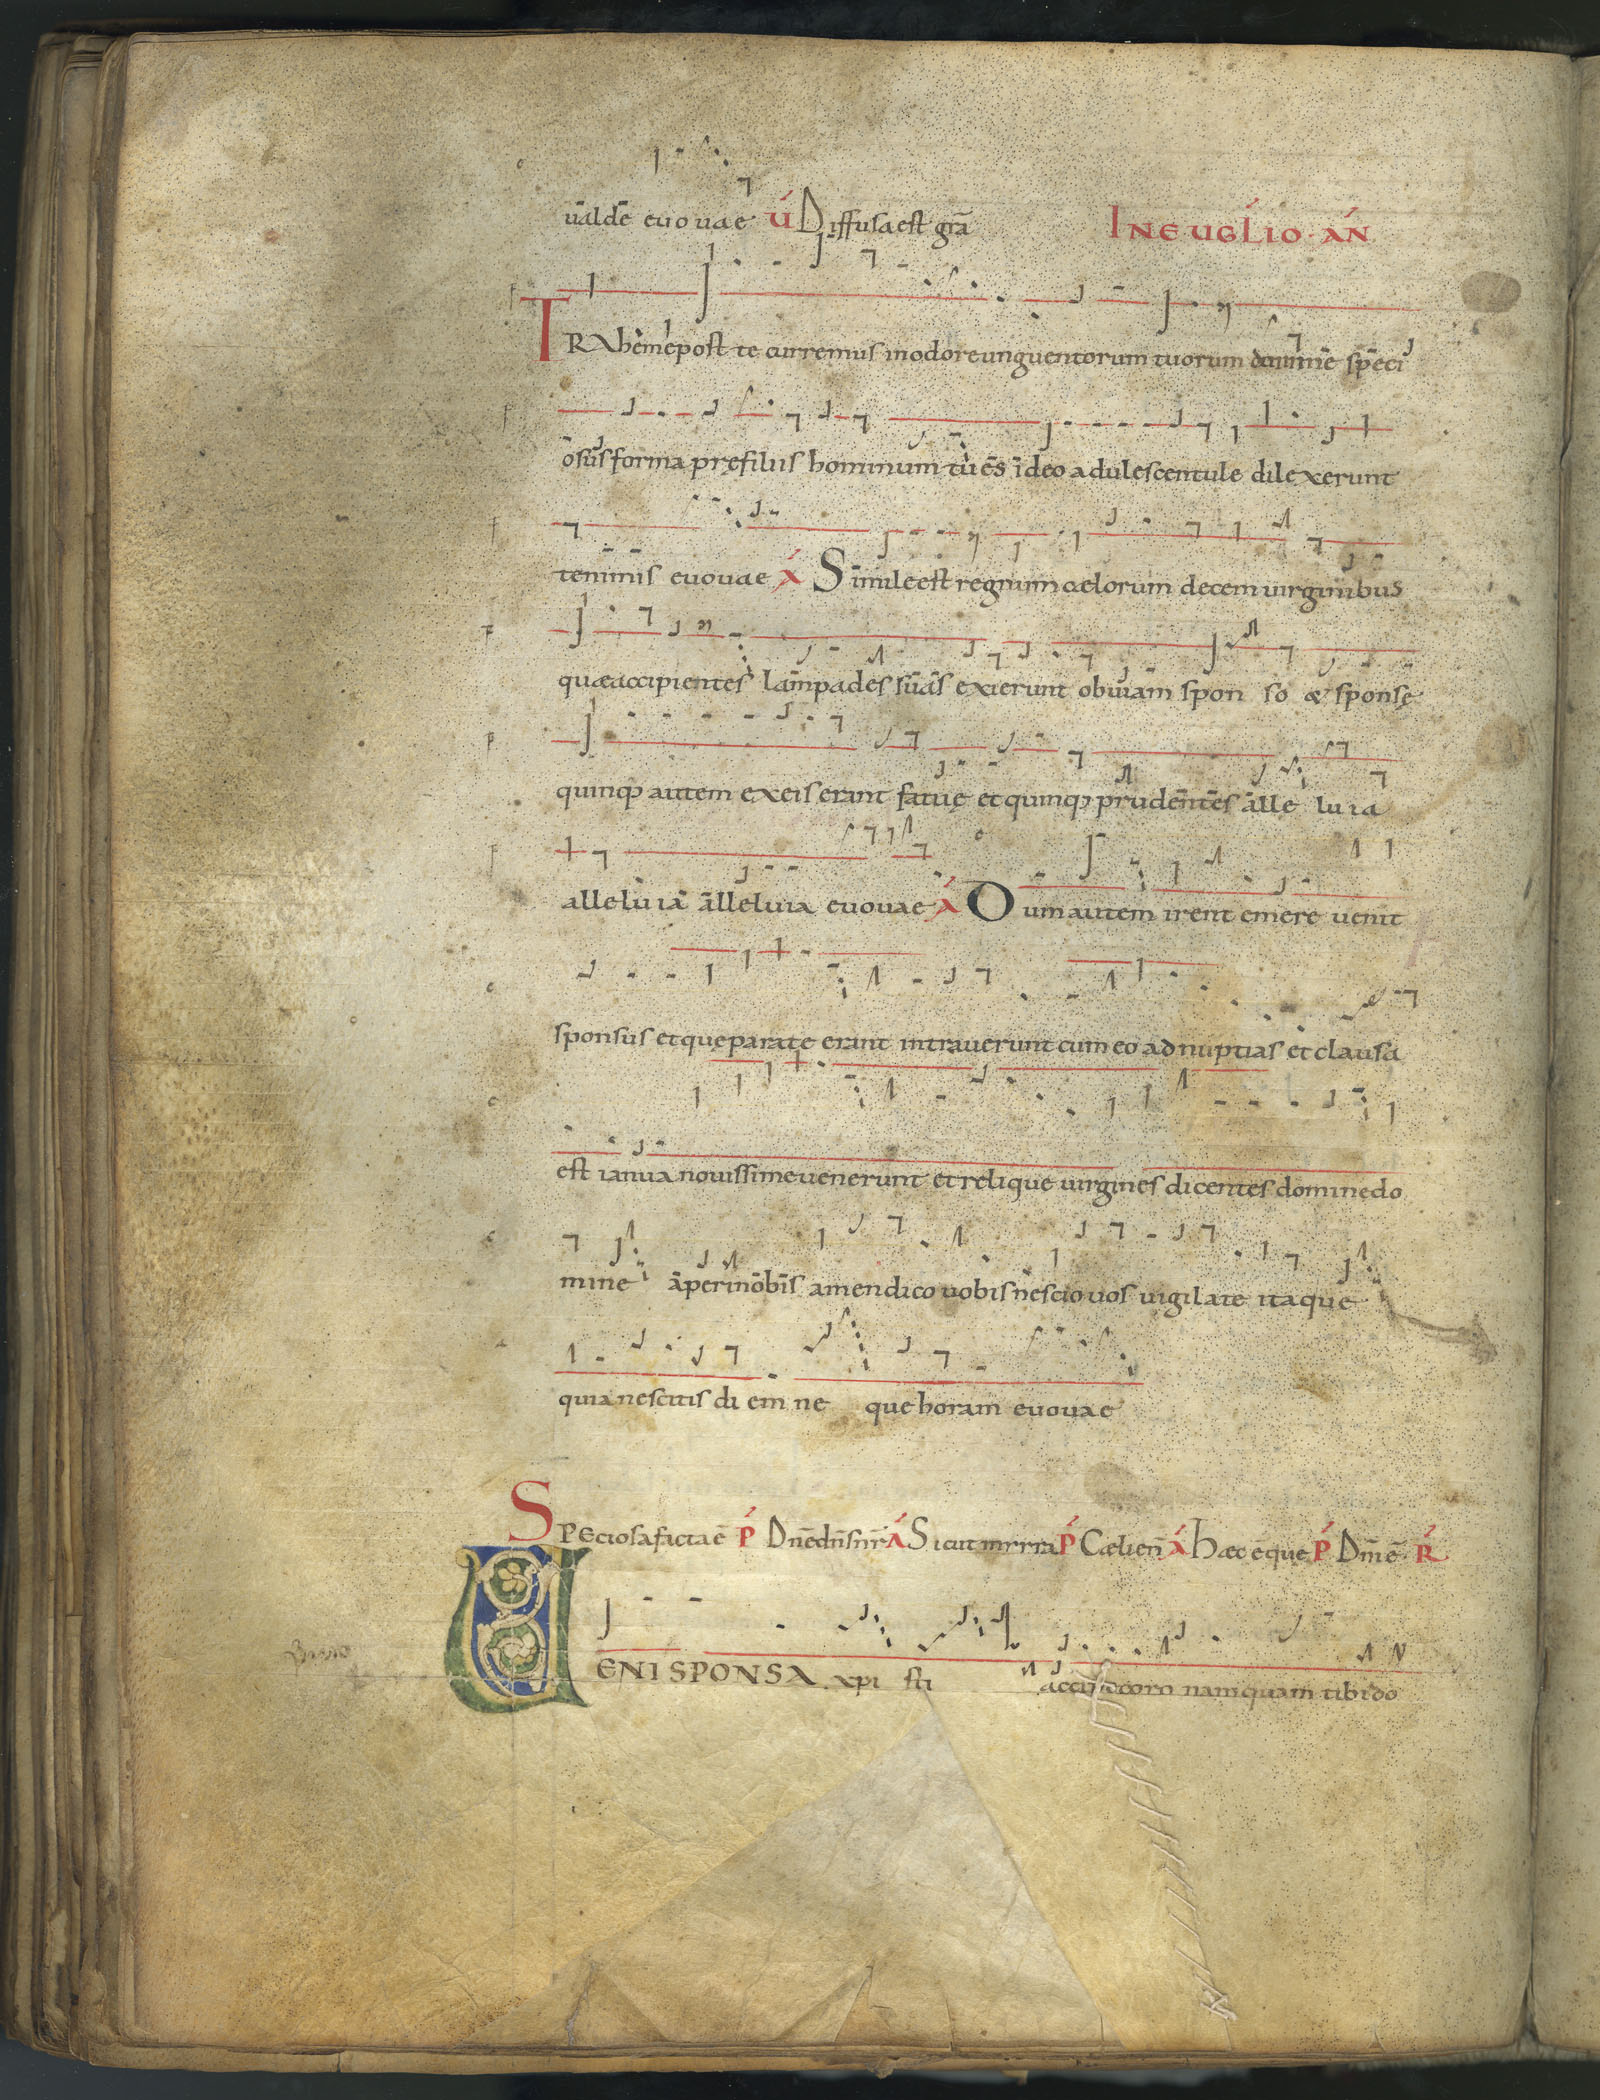 ualde euouae v́ Diffusa est grā IN EUGLIO · AN
TRAheme post te curremus in odore unguentorum tuorum domine speci
osus forma pręfiliis hominum tu es ideo adulescentule dilexerunt
te nimis euouae A Simile est regnum cælorum decem uirginibus
quæ accipientes lampades suas exierunt obuiam spon so & sponsę
quinq; autem ex eis erant fatuę et quinq; prudentes alle lu ia
alleluia alleluia euouae A Dum autem irent emere uenit
sponsus et quę parate erant intrauerunt cum eo ad nuptias et clausa
est ianua nouissime uenerunt et relique uirgines dicentes domine do
mine aperi nobis amen dico uobis nescio uos uigilate itaque
quia nescitis di em ne que horam euouae
SPEciosa facta ē P Dnē dn̄s nr̄ A Sicut mirra P Cæli en̄ A Hæc e que P Dm̄ ē R
UENI SPONSA xpi sti accipe coro nam quam tibi do